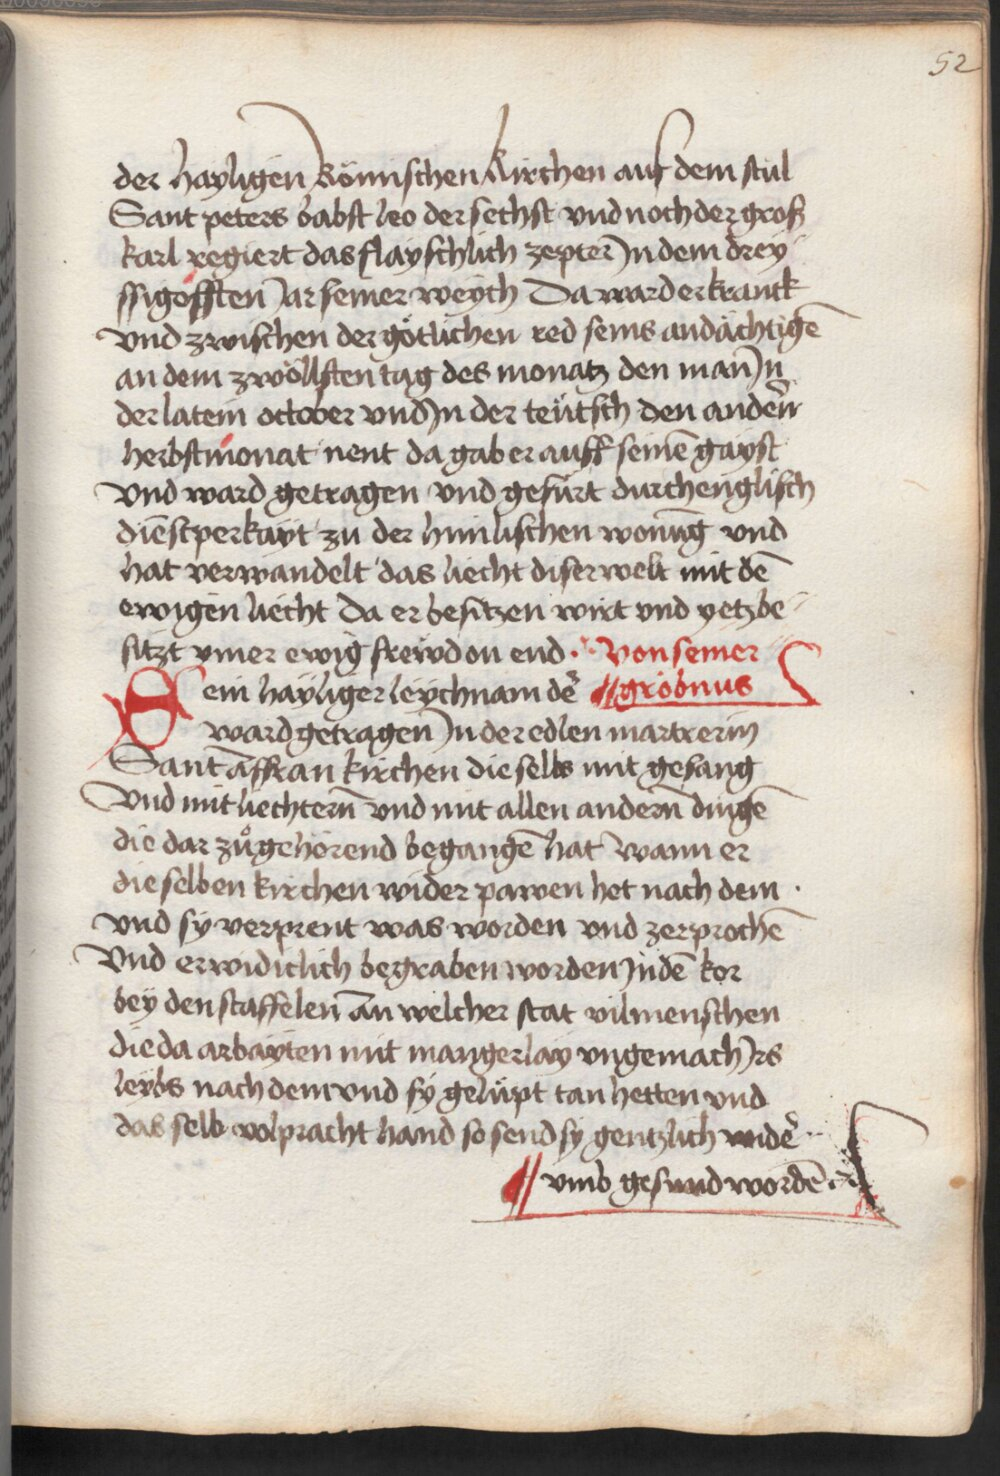 52
der hayligen Römischen kirchen auf dem stůl
Sant peters babst leo der sechst vnd noch der groß
karl regiert das flayschlich zepter In dem drey
ssigosſten Iar seiner weych Da ward er kranck
vnd zwischen der götlichen red seins andächtigē
an dem zwölfften tag des monatz den man In
der latein october vnd In der teütsch den andern̄
herbstmonat nent da gab er auff seinē gayst
vnd ward getragen vnd gefürt durch englisch
diēstperkayt zu der himlischen wonūg vnd
hat verwandelt das liecht diser welt mit dē
ewigen liecht Da er besitzen wirt vnd yetz be
sitzt ymer ewig frewd on end · Von seiner
gröbnus
Sein hayliger leychnam der
ward getragen In der edlen martrerin
Sant āffran kirchen die selbs mit gesang
Vnd mit liechtern̄ vnd mit allen andern̄ dingē
die dar zů gehörend begangē hat Wann er
die selben kirchen wider pawen het nach dem ·
vnd sy verprent was worden vnd zerprochē
Vnd erwidiclich begraben worden In dē kor
bey den staffelen An welcher stat vil menschen
die da arbayten mit mangerlay vngemach Irs
leybs nach dem vnd sy gelüpt tan hetten vnd
das selb volpracht hand so send sy gentzlich wider
vmb gesund wordē